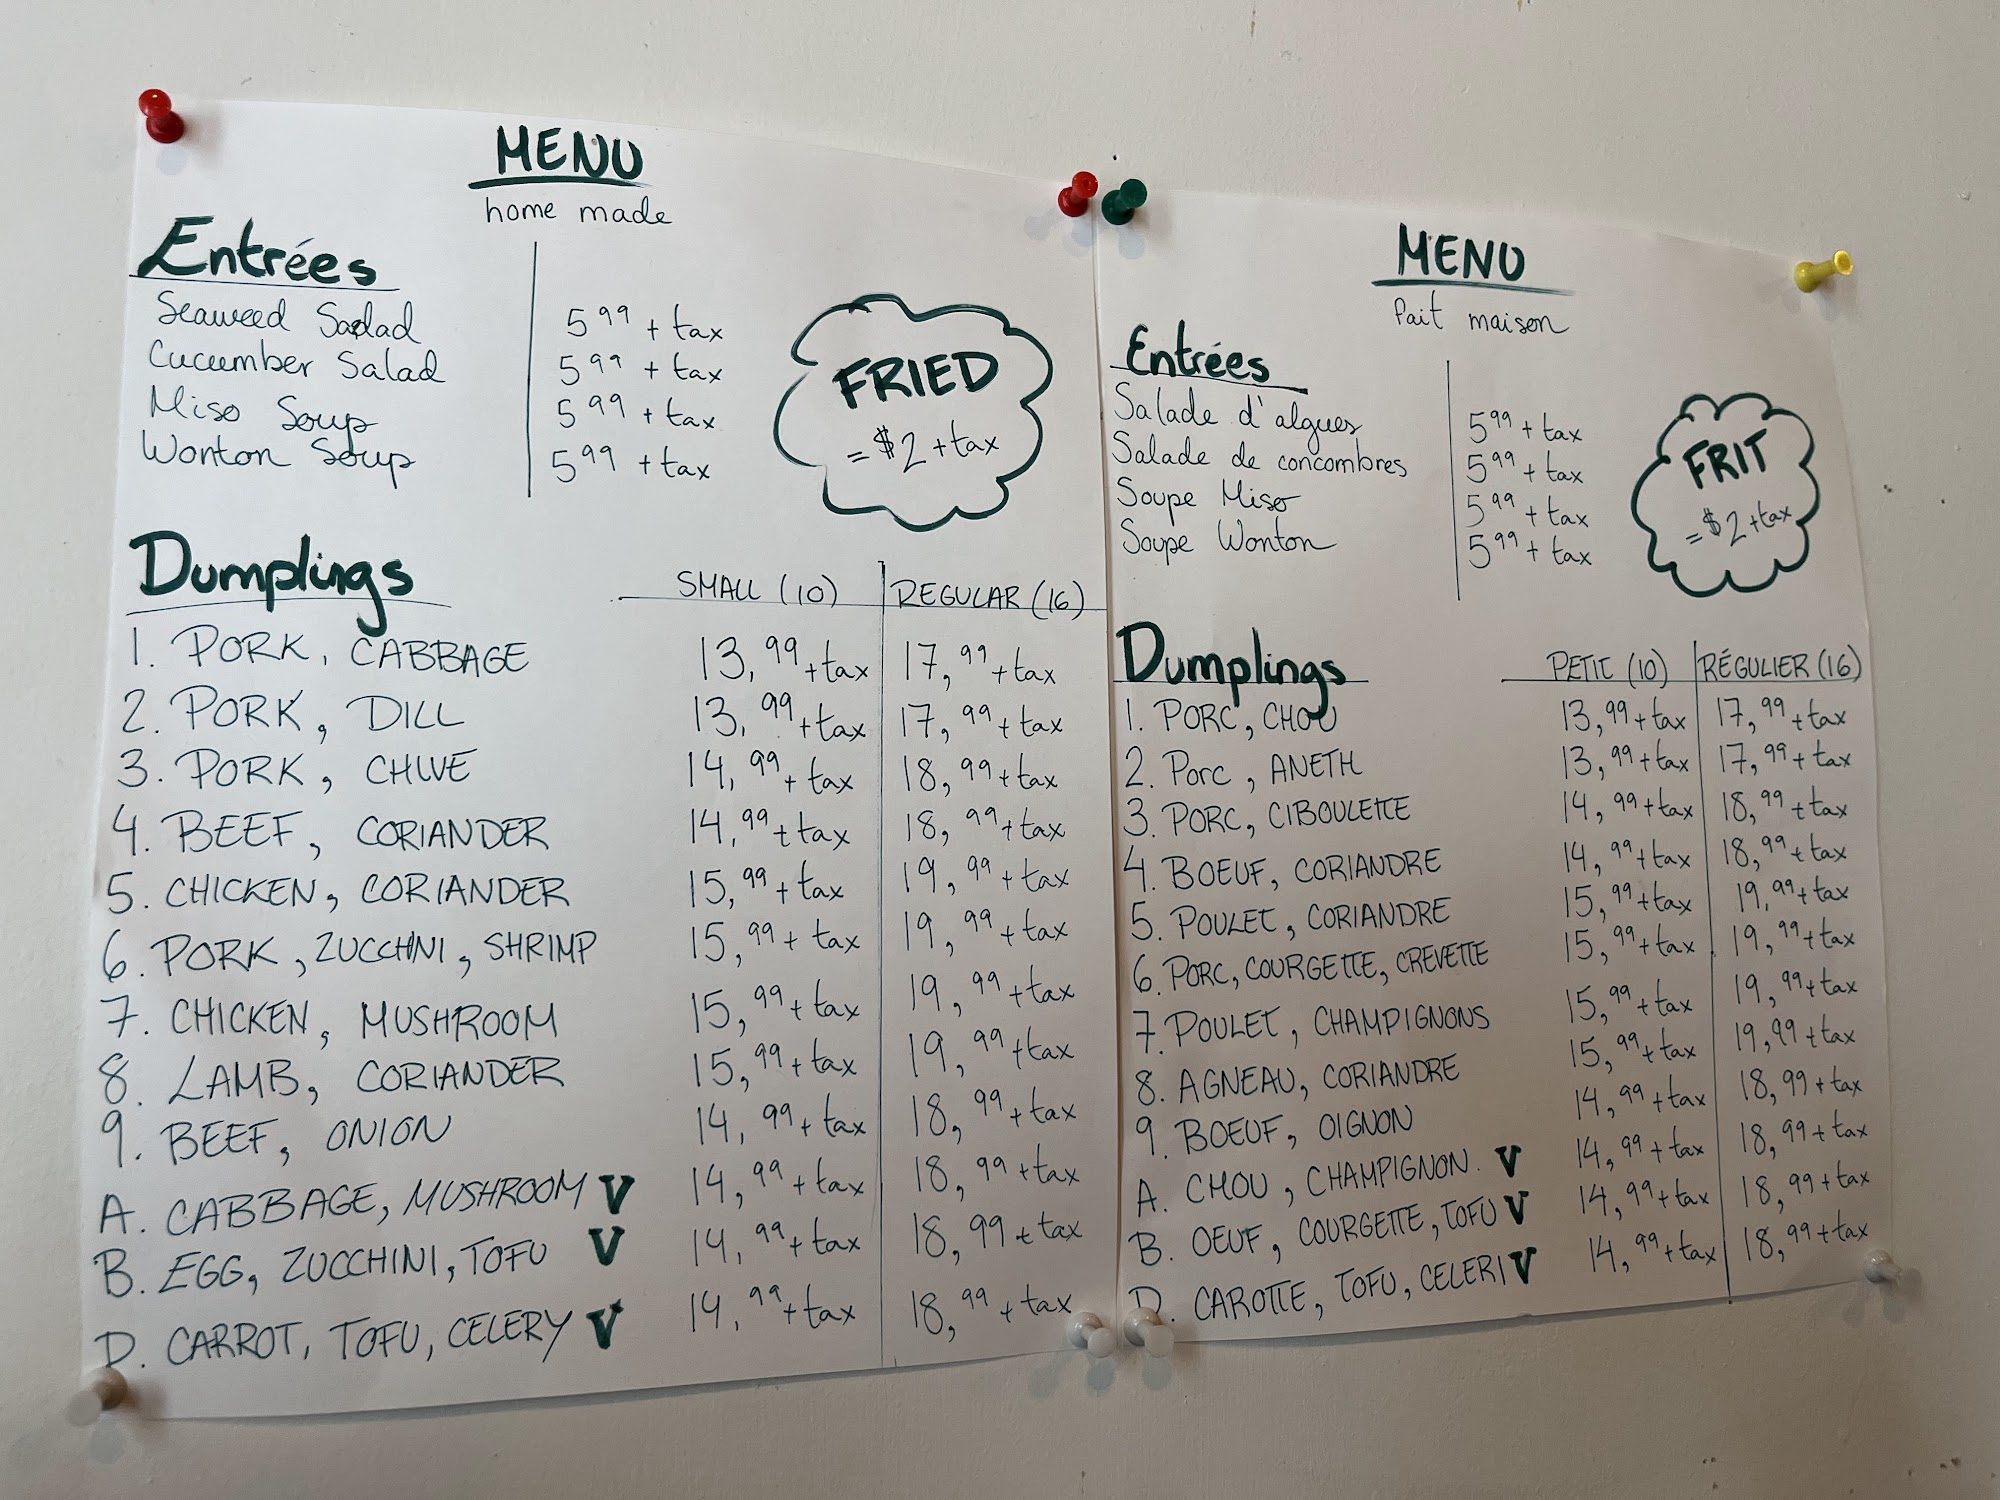 MENU
home made
Entrées
Seaweed Salad 5 99 + tax
Cucumber Salad 5 99 + tax
Miso Soup 5 99 + tax
Wonton Soup 5 99 + tax
FRIED
= $2 + tax
Dumplings SMALL (10) REGULAR (16)
1. PORK, CABBAGE 13,99 + tax 17,99 + tax
2. PORK, DILL 13,99 + tax 17,99 + tax
3. PORK, CHIVE 14,99 + tax 18,99 + tax
4. BEEF, CORIANDER 14,99 + tax 18,99 + tax
5. CHICKEN, CORIANDER 15,99 + tax 19,99 + tax
6. PORK, ZUCCHINI, SHRIMP 15,99 + tax 19,99 + tax
7. CHICKEN, MUSHROOM 15,99 + tax 19,99 + tax
8. LAMB, CORIANDER 15,99 + tax 19,99 + tax
9. BEEF, ONION 14,99 + tax 18,99 + tax
A. CABBAGE, MUSHROOM V 14,99 + tax 18,99 + tax
B. EGG, ZUCCHINI, TOFU V 14,99 + tax 18,99 + tax
D. CARROT, TOFU, CELERY V 14,99 + tax 18,99 + tax
MENU
fait maison
Entrées
Salade d'algues 5 99 + tax
Salade de concombres 5 99 + tax
Soupe Miso 5 99 + tax
Soupe Wonton 5 99 + tax
FRIT
= $2 + tax
Dumplings PETIT (10) RÉGULIER (16)
1. PORC, CHOU 13,99 + tax 17,99 + tax
2. PORC, ANETH 13,99 + tax 17,99 + tax
3. PORC, CIBOULETTE 14,99 + tax 18,99 + tax
4. BOEUF, CORIANDRE 14,99 + tax 18,99 + tax
5. POULET, CORIANDRE 15,99 + tax 19,99 + tax
6. PORC, COURGETTE, CREVETTE 15,99 + tax 19,99 + tax
7. POULET, CHAMPIGNONS 15,99 + tax 19,99 + tax
8. AGNEAU, CORIANDRE 15,99 + tax 19,99 + tax
9. BOEUF, OIGNON 14,99 + tax 18,99 + tax
A. CHOU, CHAMPIGNON. V 14,99 + tax 18,99 + tax
B. OEUF, COURGETTE, TOFU V 14,99 + tax 18,99 + tax
D. CAROTTE, TOFU, CELERI V 14,99 + tax 18,99 + tax